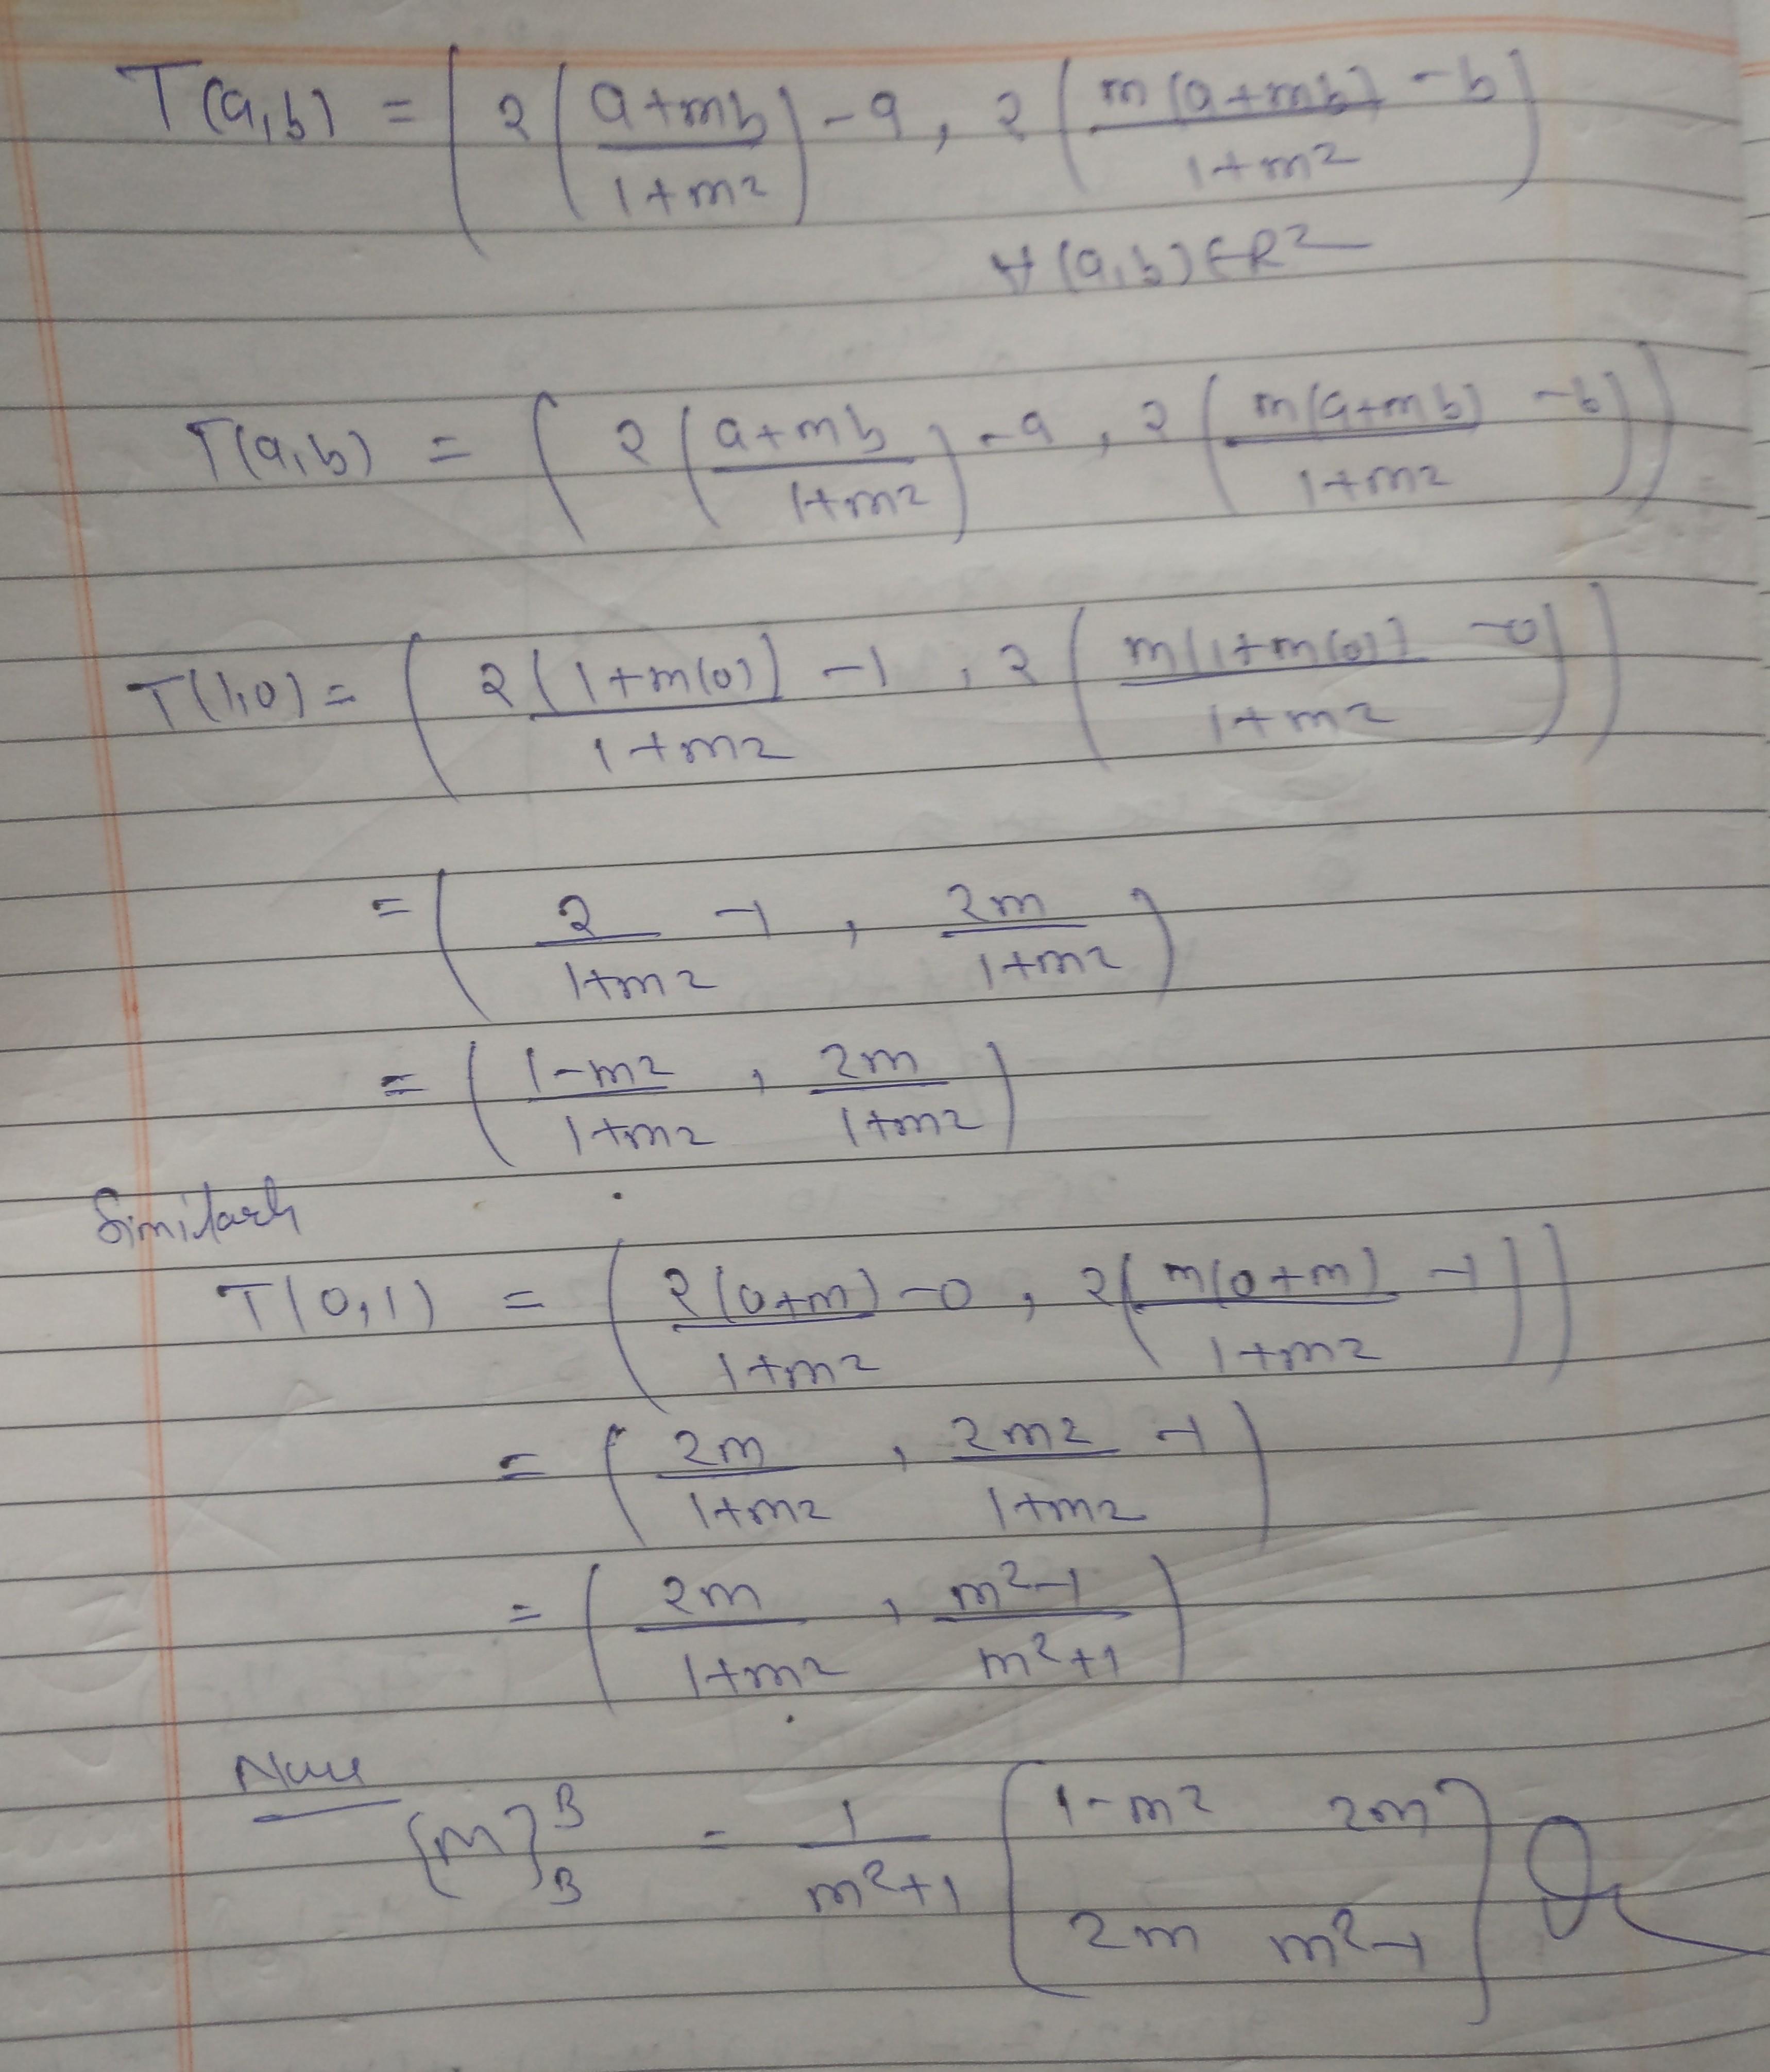 T(a,b) = ( 2 ( (a+mb)/(1+m2) ) -a , 2 ( (m(a+mb))/(1+m2) -b )
∀ (a,b) ∈ R2
T(a,b) = ( 2 ( (a+mb)/(1+m2) ) -a , 2 ( (m(a+mb))/(1+m2) -b ) )
T(1,0) = ( (2(1+m(0)))/(1+m2) -1 , 2 ( (m(1+m(0)))/(1+m2) -0 ) )
= ( 2/(1+m2) -1 , 2m/(1+m2) )
= ( (1-m2)/(1+m2) , 2m/(1+m2) )
Similarly
T(0,1) = ( (2(0+m))/(1+m2) -0 , 2 ( (m(0+m))/(1+m2) -1 ) )
= ( 2m/(1+m2) , 2m2/(1+m2) -1 )
= ( 2m/(1+m2) , (m2-1)/(m2+1) )
Now
[m]B B = 1/(m2+1) [ 1-m2 2m
2m m2-1 ]